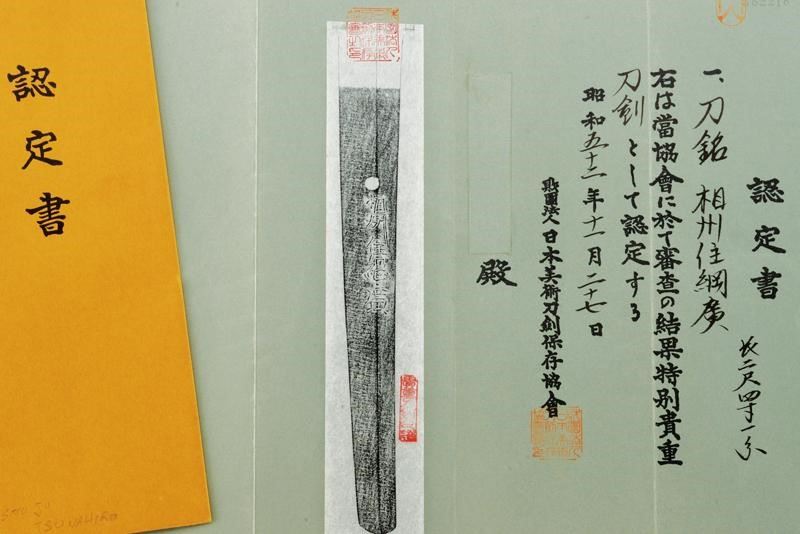 認定書
一、刀 銘 相州住綱廣
長二尺四寸一分
右は當協會に於て審査の結果特別貴重
刀剣として認定する
昭和五十二年十一月二十七日
財團法人日本美術刀剣保存協會
殿
相州住綱廣
認定書
TSUNAHIRO